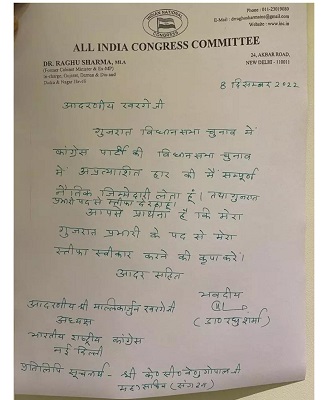 Phone : 011-23019080
E-mail : drraghusharmainc@gmail.com
Website : www.inc.in
INDIAN NATIONAL CONGRESS
ALL INDIA CONGRESS COMMITTEE
DR. RAGHU SHARMA, MLA
(Former Cabinet Minister & Ex-MP)
In-charge, Gujarat, Daman & Diu and
Dadra & Nagar Haveli
24, AKBAR ROAD,
NEW DELHI - 110011
8 दिसम्बर 2022
आदरणीय खरगे जी
गुजरात विधानसभा चुनाव में
कांग्रेस पार्टी की विधानसभा चुनाव
में अप्रत्याशित हार की मैं सम्पूर्ण
नैतिक जिम्मेदारी लेता हूँ। तथा गुजरात
प्रभारी पद से स्तीफा दे रहा हूँ।
आपसे प्रार्थना है कि मेरा
गुजरात प्रभारी के पद से मेरा
स्तीफा स्वीकार करने की कृपा करें।
आदर सहित
भवदीय
(डा० रघु शर्मा)
आदरणीय श्री मल्लिकार्जुन खरगे जी
अध्यक्ष
भारतीय राष्ट्रीय कांग्रेस
नई दिल्ली
प्रतिलिपि सूचनार्थ - श्री के० सी० वेणुगोपाल जी
महासचिव (संगठन)